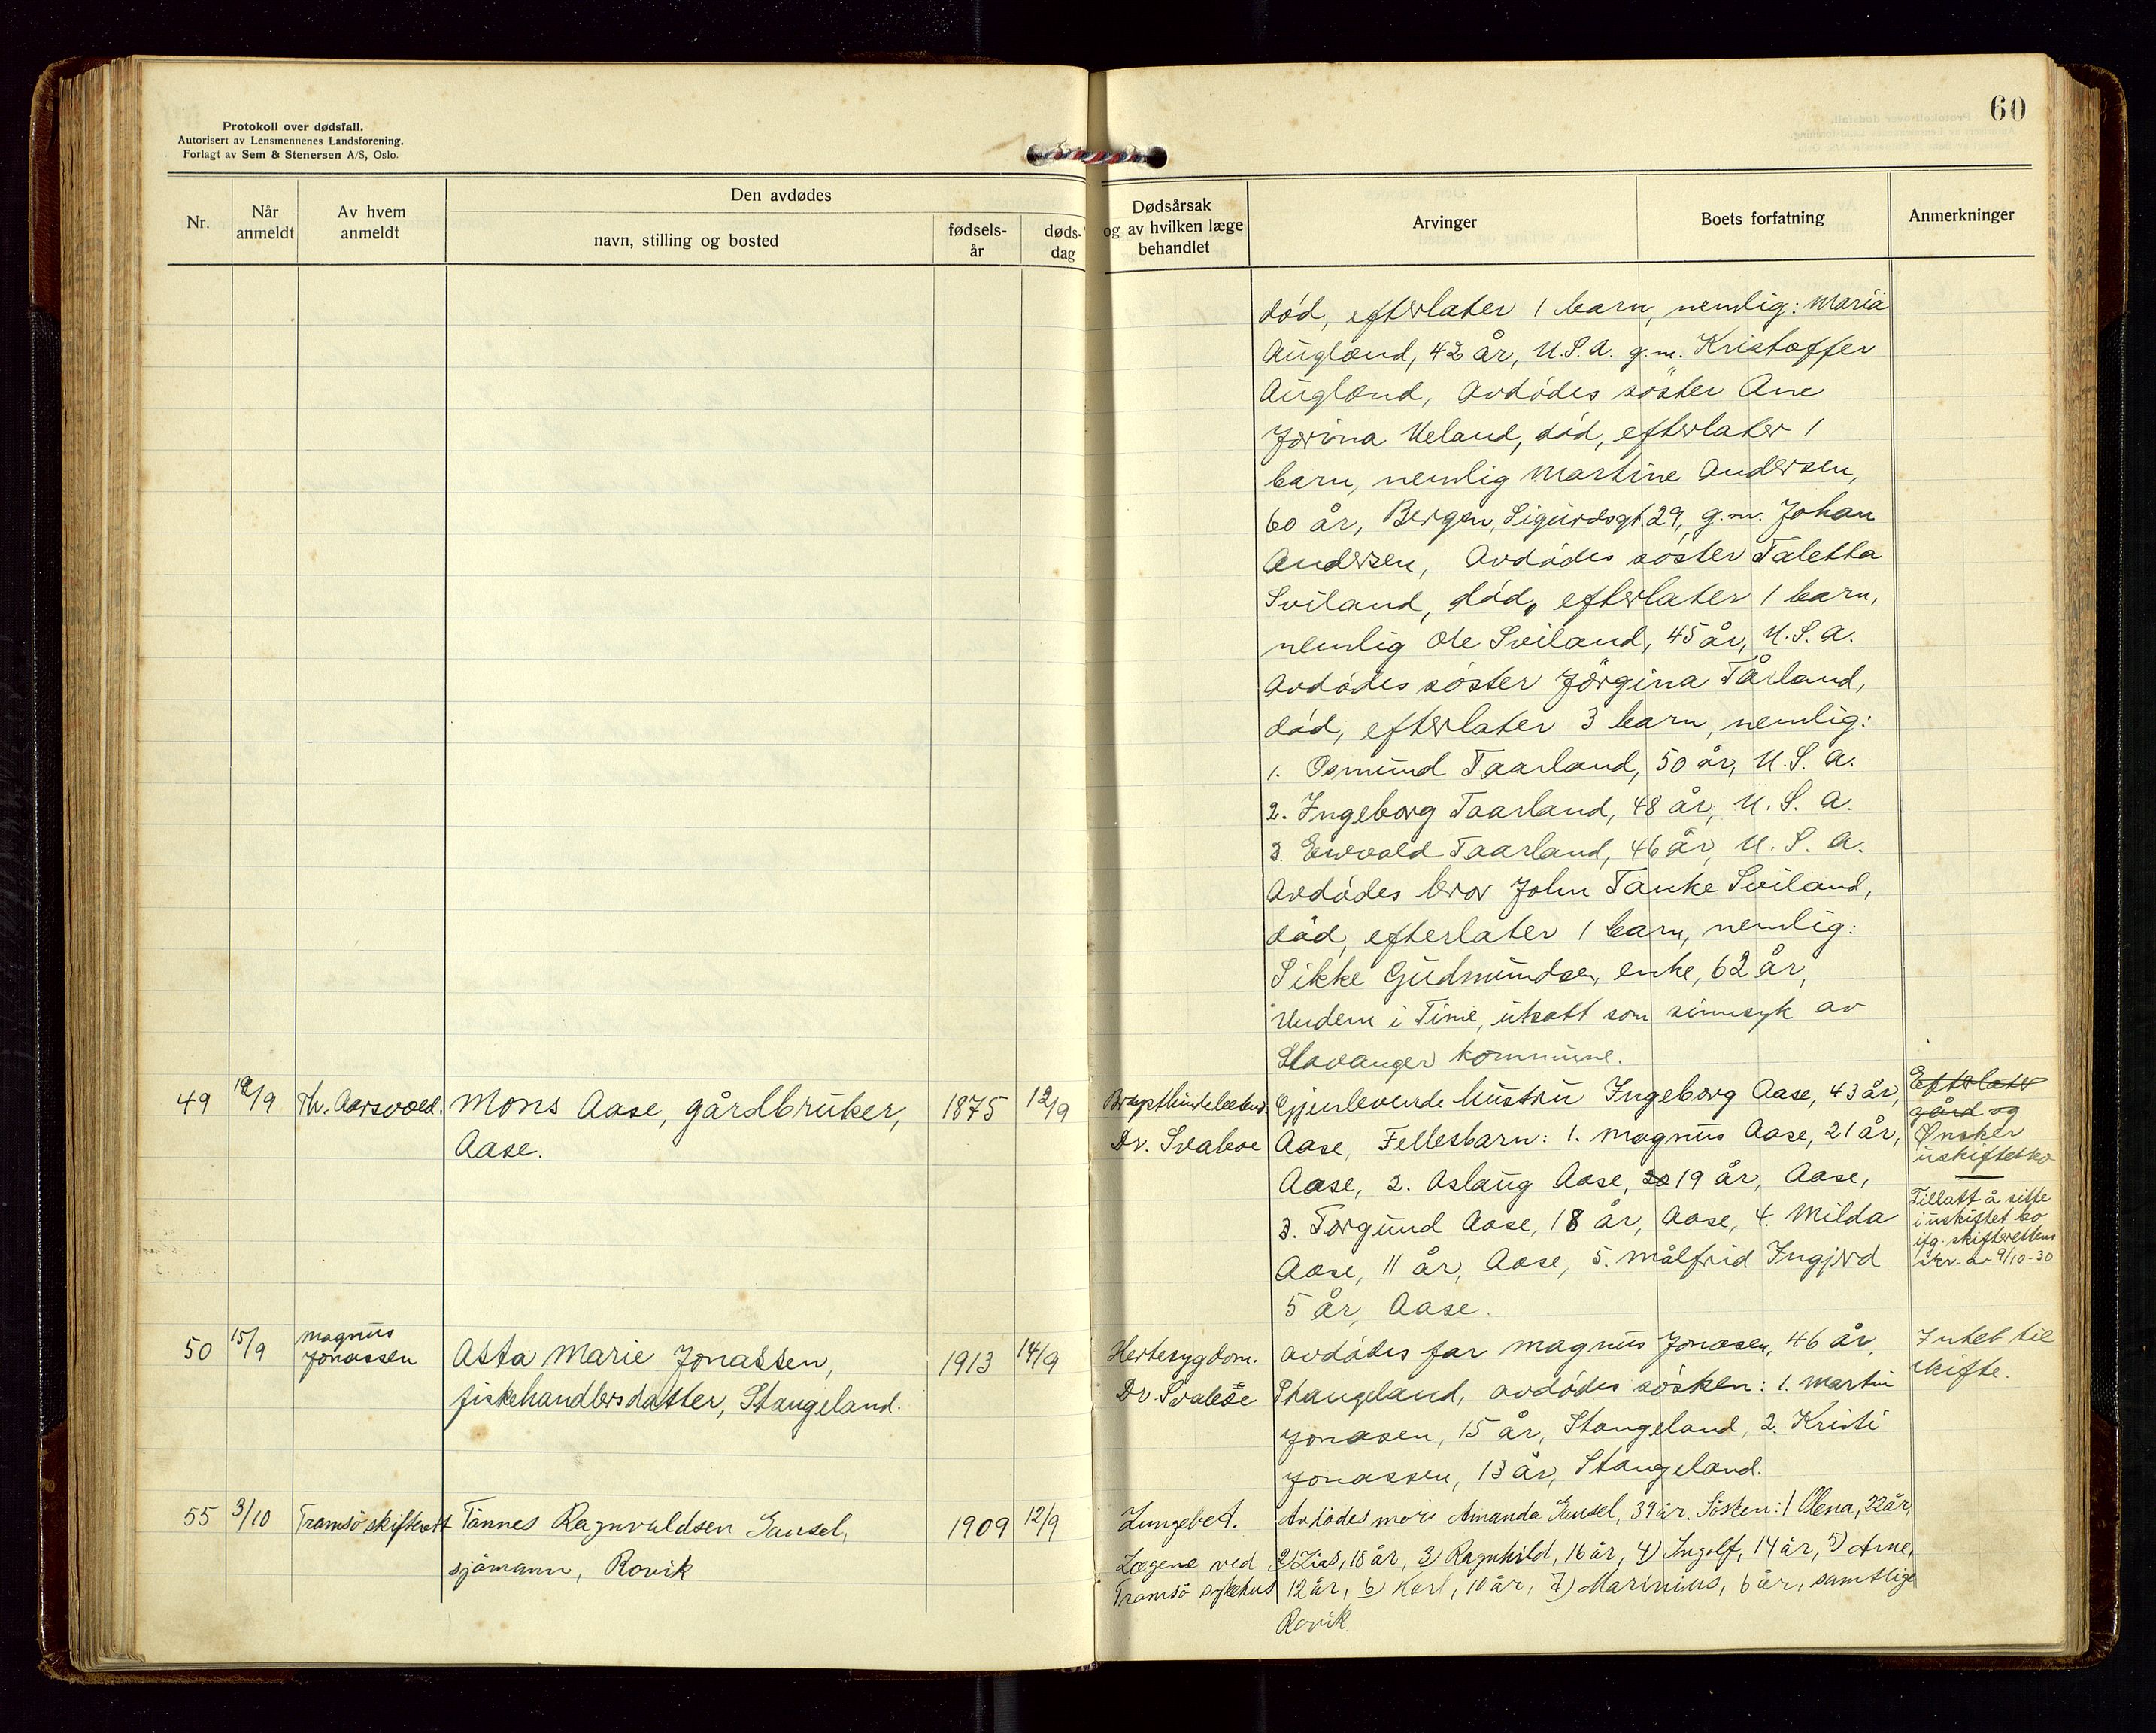 60
Protokoll over dødsfall.
Autorisert av Lensmennenes Landsforening.
Forlagt av Sem & Stenersen A/S, Oslo.
Nr.
Når anmeldt
Av hvem anmeldt
Den avdødes
navn, stilling og bosted
fødsels-år
døds-dag
Dødsårsak og av hvilken læge behandlet
Arvinger
Boets forfatning
Anmerkninger
død, efterlater 1 barn, nemlig: Maria
Augland, 42 år, U.S.A. g.m. Kristoffer
Augland, Avdødes søster Ane
Jorina Ueland, død, efterlater 1
barn, nemlig Martine Andersen,
60 år, Bergen, Sigurdsgt. 29, g.m. Johan
Andersen, Avdødes søster Taletta
Sviland, død, efterlater 1 barn,
nemlig Ole Sviland, 45 år, U.S.A.
Avdødes søster Jørgina Tårland,
død, efterlater 3 barn, nemlig:
1. Osmund Taarland, 50 år, U.S.A.
2. Ingeborg Taarland, 48 år, U.S.A.
3. Enevald Taarland, 46 år, U.S.A.
Avdødes bror John Tanke Sviland,
død, efterlater 1 barn, nemlig:
Sikke Gudmundsen, enke, 62 år,
Undem i Time, utsatt som sinnsyk av
Stavanger kommune.
49 12/9 Th. Aarsvold. Mons Aase, gårdbruker, 1875 12/9
Aase.
Dr. Svaboe
Gjenlevende hustru Ingeborg Aase, 43 år,
Aase, Fellesbarn: 1. Magnus Aase, 21 år,
Aase, 2. Aslaug Aase, 20 19 år, Aase,
3. Torgund Aase, 18 år, Aase, 4. Milda
Aase, 11 år, Aase, 5. Målfrid Ingjerd
5 år, Aase.
Efterlater
gård og
Ønsker
uskiftet bo
Tillatt å sitte
i uskiftet bo
ifg. skifterettens
skr. av 9/10-30
50 15/9 Magnus
Jonassen
Asta Marie Jonassen, 1913 14/9
fiskehandlersdatter, Stangeland.
Hertesygdom.
Dr. Svaboe
avdødes far Magnus Jonasen, 46 år,
Stangeland, avdødes søsken: 1. Martin
Jonasen, 15 år, Stangeland, 2. Kristi
Jonassen, 13 år, Stangeland.
Intet til
skifte.
55 3/10 Tromsø skifterett Tønnes Ragnvaldsen Gausel, 1909 12/9
sjømann, Rovik
Lungebet.
Lægene ved
Tromsø sykehus
Avdødes mor: Amanda Gausel, 39 år. Søsken: 1 Olena, 22 år,
2) Lias, 18 år, 3) Ragnhild, 16 år, 4) Ingolf, 14 år, 5) Arne,
12 år, 6) Karl, 10 år, 7) Marinius, 6 år, samtlige
Rovik.